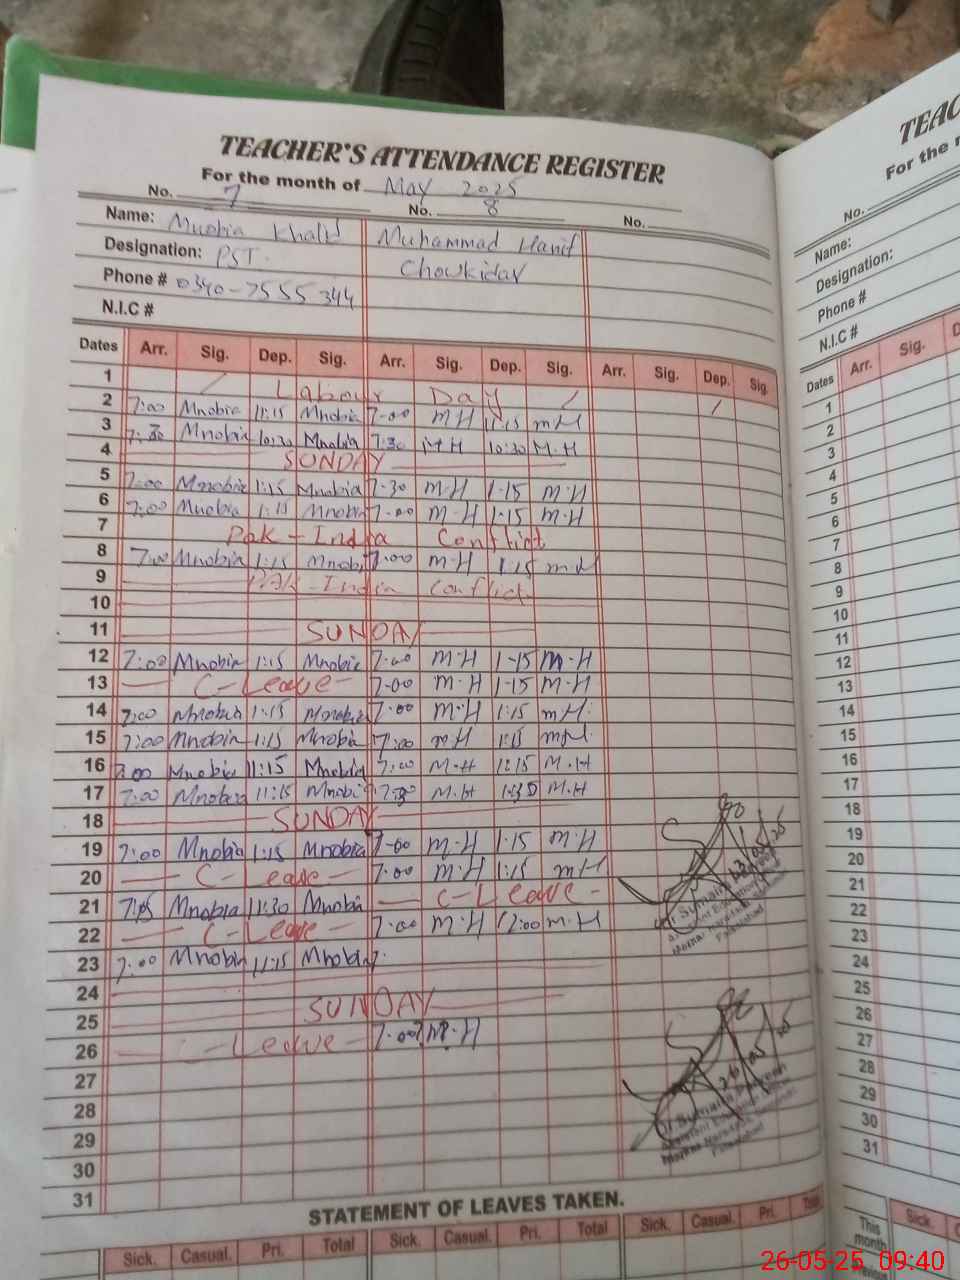 TEACHER'S ATTENDANCE REGISTER
For the month of May 2025
No. 7 No. 8 No.
Name: Mnobia Khalid Muhammad Hanif
Designation: PST. Chowkidar
Phone # 0340-7555344
N.I.C #
Dates Arr. Sig. Dep. Sig. Arr. Sig. Dep. Sig. Arr. Sig. Dep. Sig.
1 Labour Day
2 7:00 Mnobia 11:15 Mnobia 7-00 M H 11:15 M H
3 7:30 Mnobia 10:30 Mnobia 7:30 M H 10:30 M.H
4 SUNDAY
5 7:00 Mnobia 1:15 Mnobia 7-30 M-H 1-15 M-H
6 7:00 Mnobia 1:15 Mnobia 7-00 M-H 1:15 M-H
7 Pak-India Conflict
8 7:00 Mnobia 1:15 Mnobi 7:00 M-H 1:15 M-H
9 Pak-India Conflict
10
11 SUNDAY
12 7:00 Mnobia 1:15 Mnobia 7:00 M-H 1-15 M-H
13 C-Leave 7-00 M-H 1-15 M-H
14 7:00 Mnobia 1:15 Mnobia 7:00 M-H 1:15 M-H
15 7:00 Mnobia 1:15 Mnobia 7:00 M-H 1:15 M-H
16 7:00 Mnobia 11:15 Mnobia 7:00 M-H 12:15 M.H
17 7:00 Mnobia 11:15 Mnobia M.H M.H
18 SUNDAY
19 7:00 Mnobia 1:15 Mnobia 7-00 M-H 1-15 M-H
20 C-Leave 7:00 M-H 1:15 M-H
21 Mnobia 11:30 Mnobia C-Leave
22 C-Leave 7:00 M-H 12:00 M-H
23 7:00 Mnobia 11:15 Mnobia 7:
24
25 SUNDAY
26 C-Leave 7:00 M-H
27
28
29
30
31
STATEMENT OF LEAVES TAKEN.
Sick. Casual. Pri. Total Sick. Casual. Pri. Total Sick. Casual. Pri. Total
TEAC
For the m
No.
Name:
Designation:
Phone #
N.I.C #
Dates Arr. Sig. D
1
2
3
4
5
6
7
8
9
10
11
12
13
14
15
16
17
18
19
20
21
22
23
24
25
26
27
28
29
30
31
This month
Sick.
26-05-25 09:40